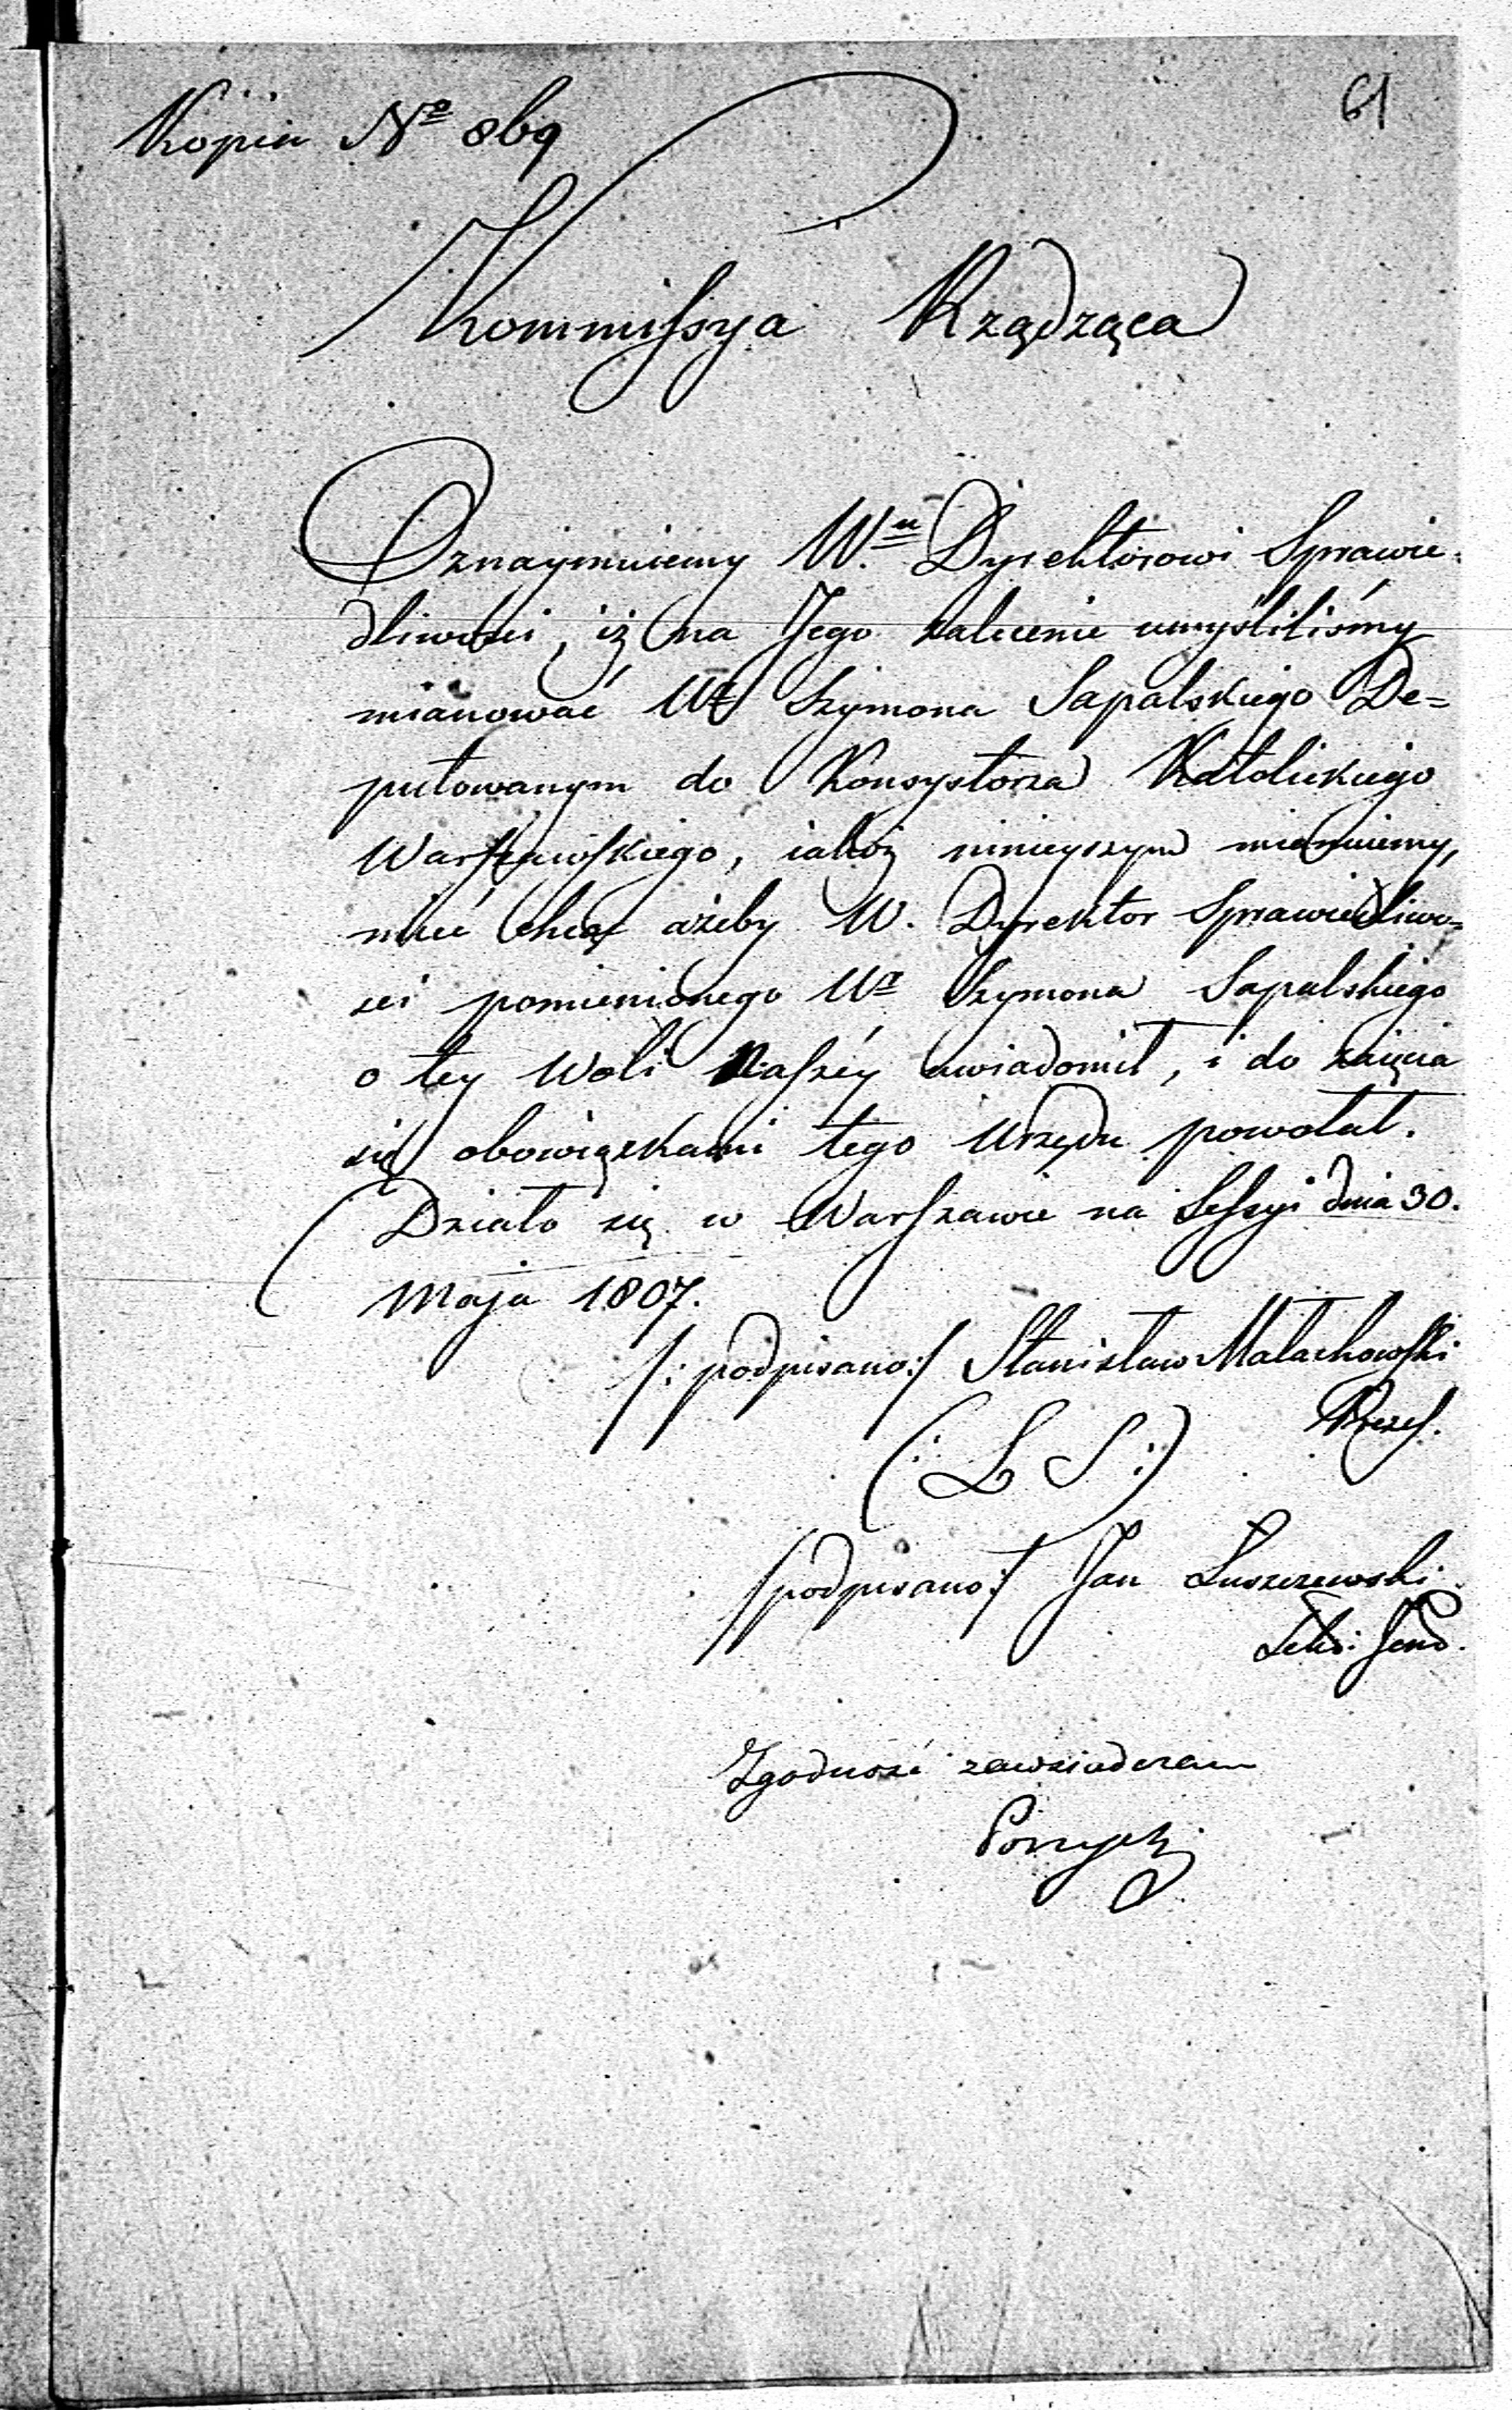 61
Kopia Nº 869
Kommissya Rządząca
Oznaymuiemy W.ᵘ Dyrektorowi Sprawie-
dliwości, iż na Jego zalecenie umyśliliśmy
mianować Szymona Sapalskiego De=
putowanym do Konsystorza Katolickiego
Warszawskiego, iakoż ninieyszym mianuiemy,
mieć chcąc ażeby W. Dyrektor Sprawiedliwo=
ści pomienionego Wº Szymona Sapalskiego
o tey Woli Naszéy uwiadomił, i do zaięcia
się obowiązkami tego Urzędu powołał.
Działo się w Warszawie na Sessyi dnia 30.
Maja 1807.
/: podpisano:/ Stanisław Małachowski
Prezes.
(: L S :)
/podpisano:/ Jan Łuszczewski
Sekr: Jene.
Zgodność zawsiadczam